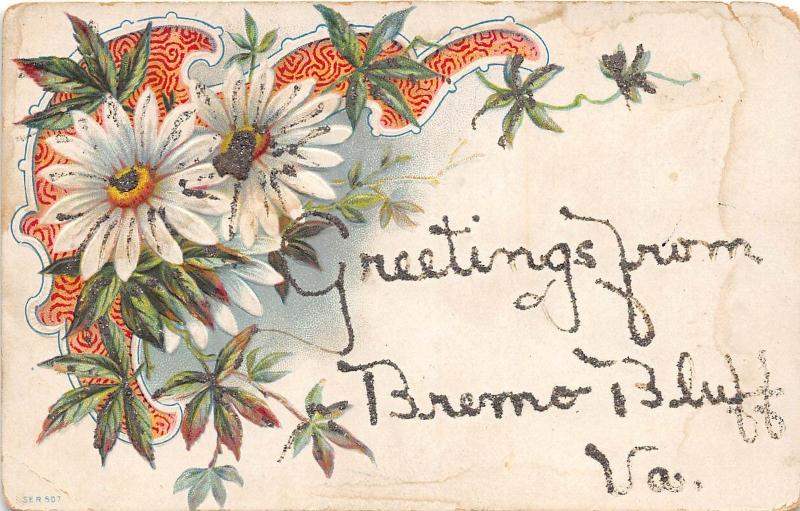 Greetings from
Bremo Bluff
Va.
SER 507